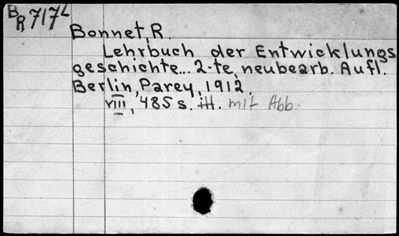 BR717L
Bonnet, R.
Lehrbuch der Entwicklungs
geschichte... 2-te, neubearb. Aufl.
Berlin, Parey, 1912.
viii, 485 s. ill. mit Abb.